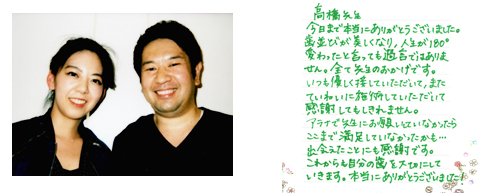 高橋先生
今日まで本当にありがとうございました。
歯並びが美しくなり、人生が180°
変わったと言っても過言ではありま
せん。全て先生のおかげです。
いつも優しく接していただいて、また
ていねいに施術していただいて
感謝してもしきれません。
アライナで先生にお願いしていなかったら
ここまで満足していなかったかも…
出会えたことにも感謝です。
これからも自分の歯を大切にして
いきます。本当にありがとうございました!